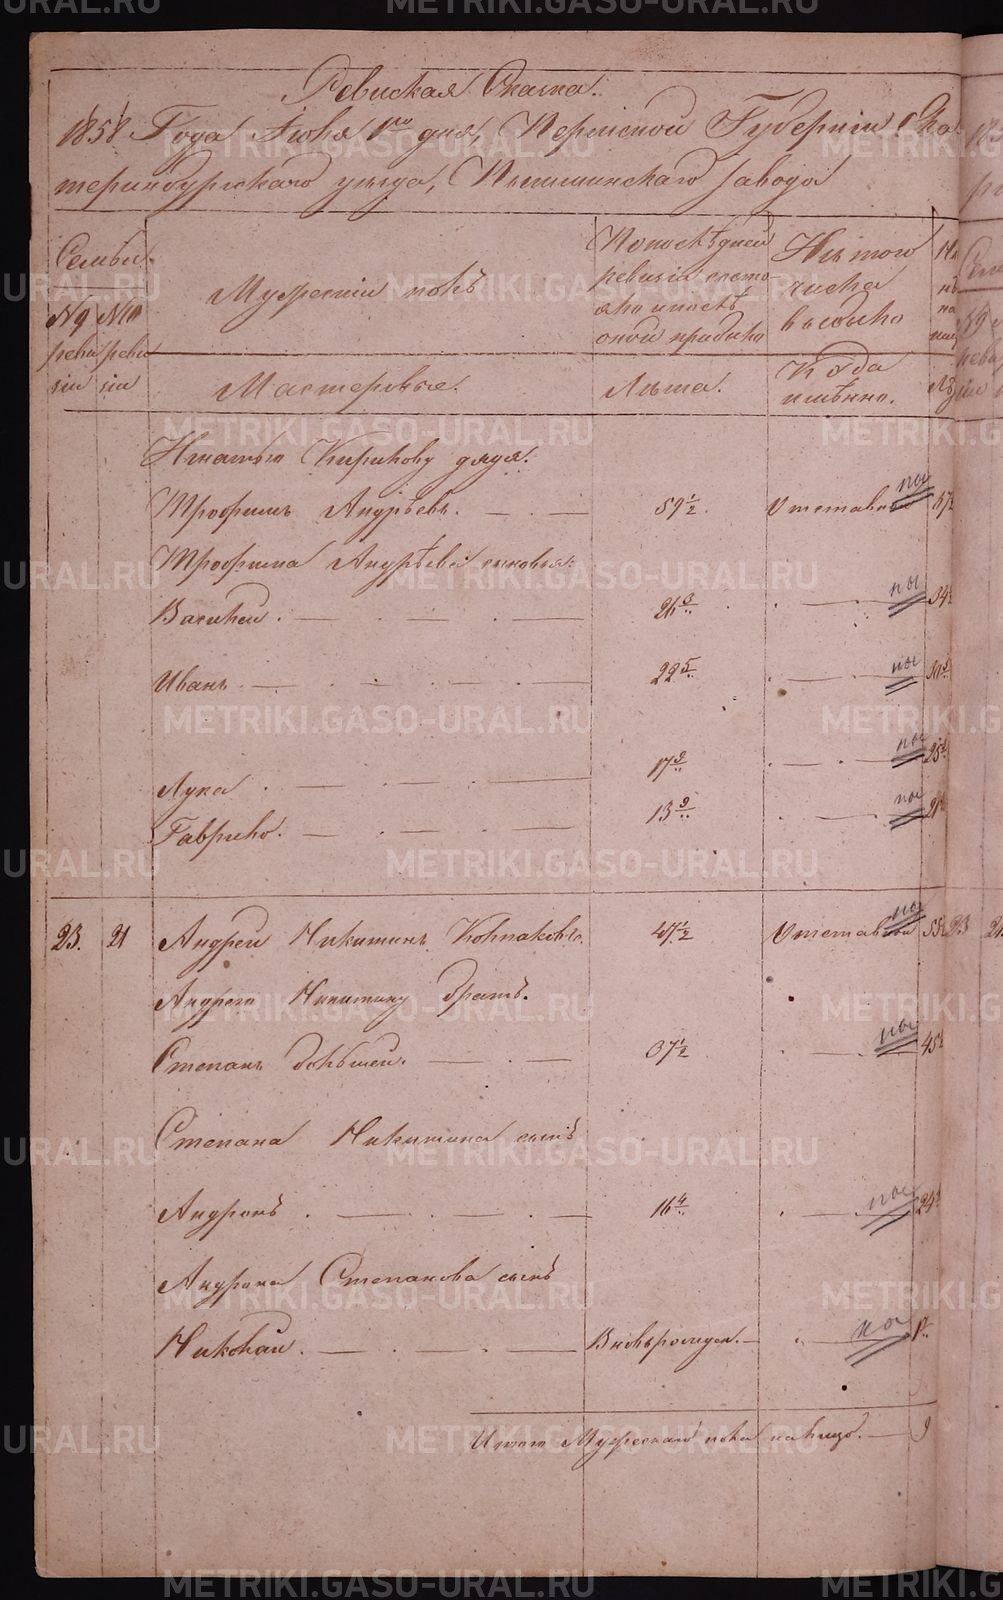 Ревиская Сказка.
1858 Года Июня 1го дня, Пермской Губернiи Ека-
теринбургскаго уезда, Пышминскаго завода
Семьи.
№ 9 № 10
реви реви
зiи зiи
Мужескiй полъ
По последней
ревизiи состо-
яло и после
оной прибыло
Изъ того
числа
выбыло
Мастеровые.
Лета.
Когда
именно.
Игнатью Кирилову дядя.
Трофимъ Андреевъ. 59 1/2 Отставной
Трофима Андреева сыновья:
Василiй. 26 3/..
Иванъ 22 5/..
Лука 17 9/..
Гаврило. 13 9/..
23. 21 Андрей Никитинъ Колпаковъ. 47 1/2 Отставной
Андрею Никитину братъ.
Степанъ большей. 37 1/2
Степана Никитина сынъ
Андронъ 16 4/..
Андрона Степанова сынъ
Николай. Вновьрожден.
Итого Мужескаго пола налицо. 9
METRIKI.GASO-URAL.RU